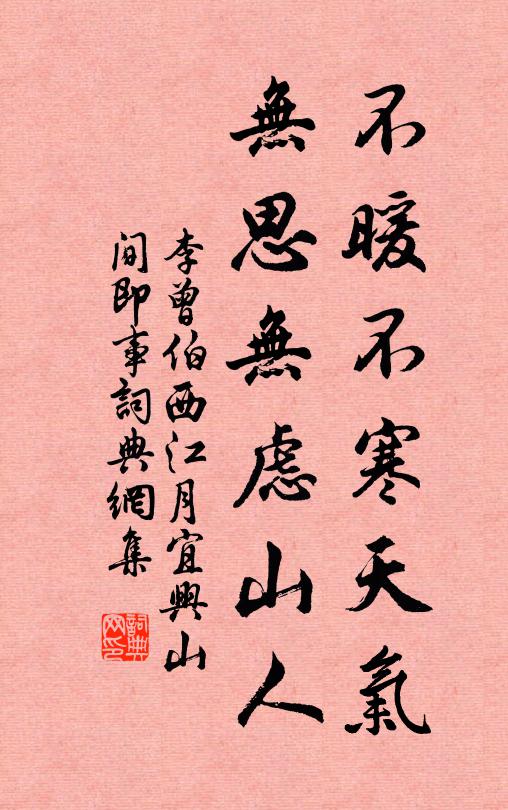 不暖不寒天氣
無思無慮山人
李曾伯西江月宜興山
間即事詞典網集
詞典
网印